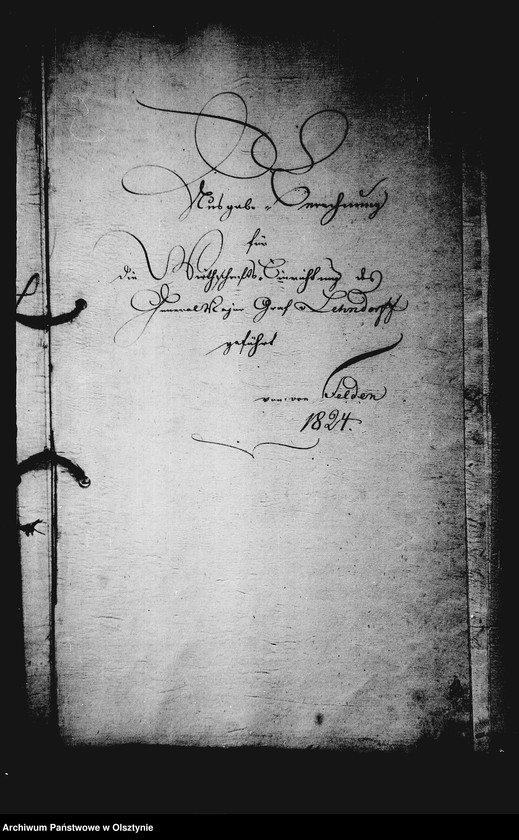 Ausgabe-Berechnung
für
die Wirthschafts-Einrichtung des
General Major Graf v Lehndorff
geführt
von von Felden
1824.
Archiwum Państwowe w Olsztynie